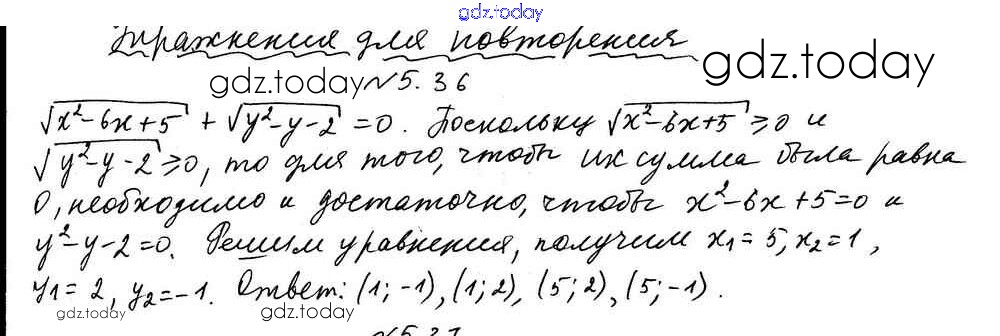 gdz.today
Упражнения для повторения
gdz.today №5.36 gdz.today
√x²-6x+5 + √y²-y-2 = 0. Поскольку √x²-6x+5 ≥ 0 и
√y²-y-2 ≥ 0, то для того, чтобы их сумма была равна
0, необходимо и достаточно, чтобы x²-6x+5=0 и
y²-y-2=0. Решим уравнения, получим x₁=5, x₂=1,
y₁=2, y₂=-1. Ответ: (1;-1), (1;2), (5;2), (5;-1).
gdz.today gdz.today
№5.37